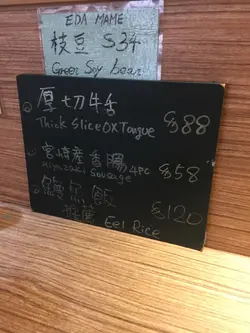 EDA MAME
枝豆 $34
Green Soy bean
厚切牛舌
Thick Slice OX Tongue $88
宮崎産香腸
Miyazaki Sausage 4PC $58
鰻魚飯 $120
Eel Rice